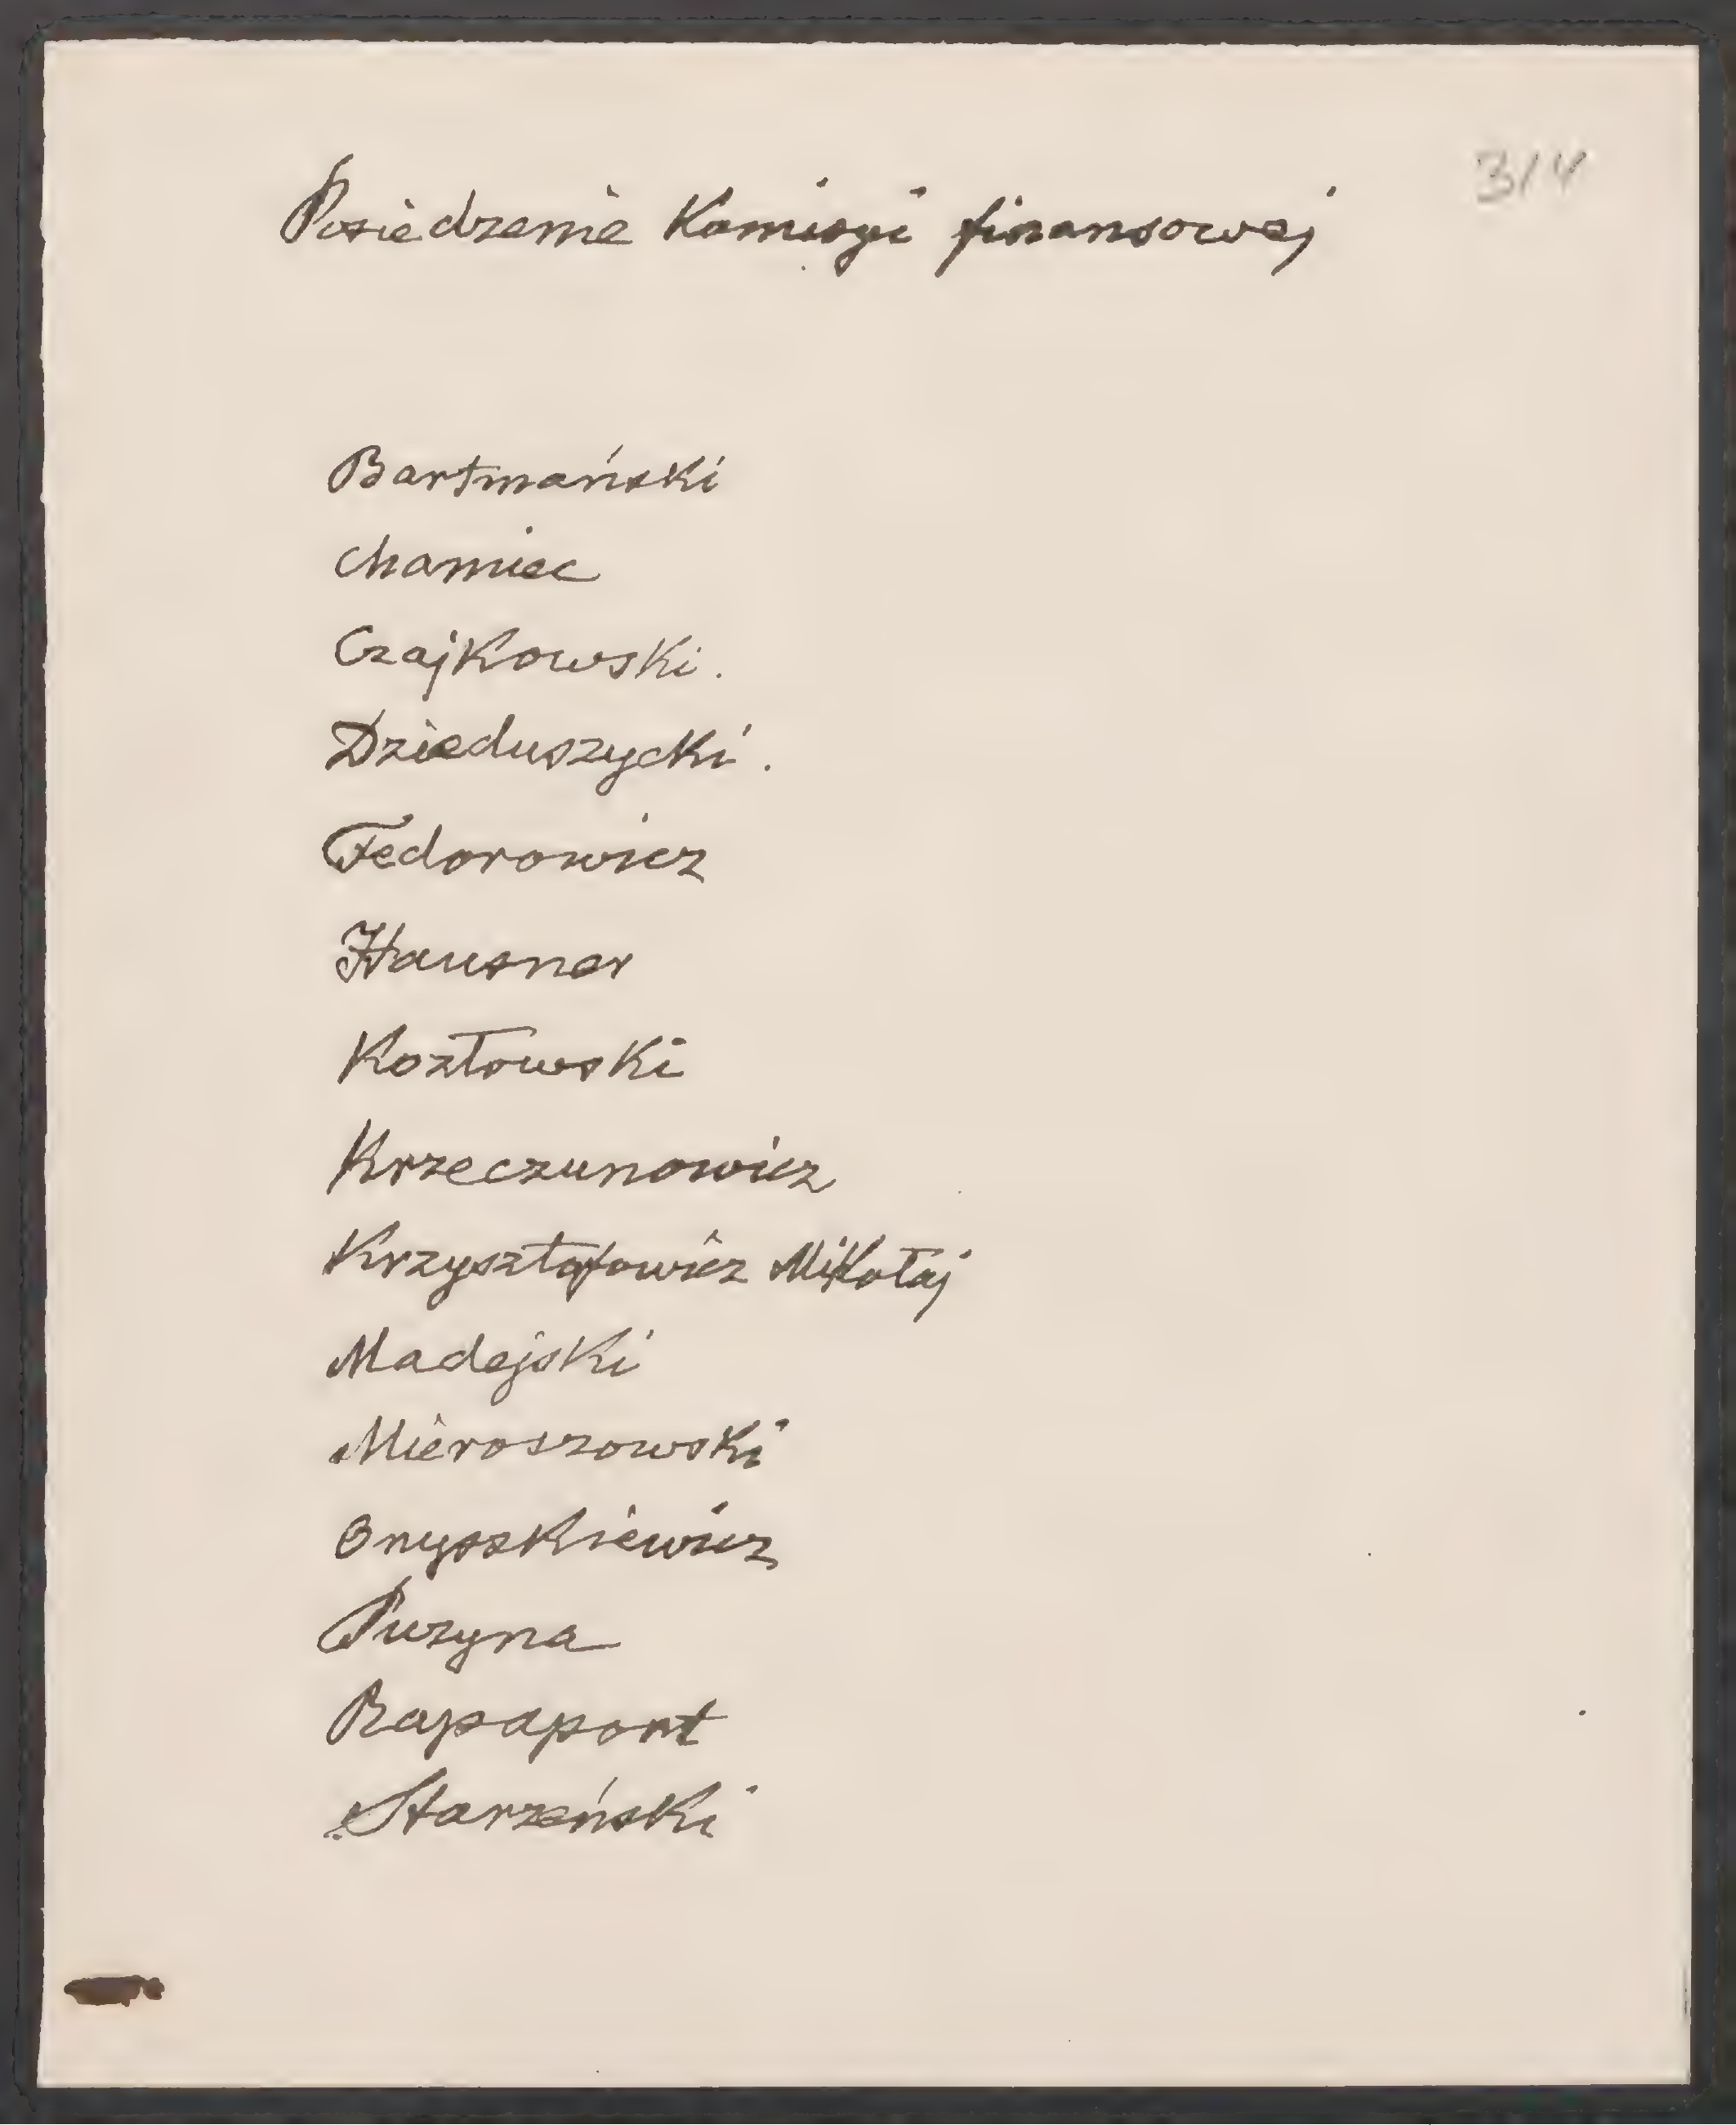 314
Posiedzenie Komisyi finansowej
Bartmański
Chamiec
Czajkowski.
Dzieduszycki.
Fedorowicz
Hausner
Kozłowski
Krzeczunowicz
Krzysztofowicz Mikołaj
Madejski
Mieroszowski
Onyszkiewicz
Puzyna
Rapaport
Starzeński